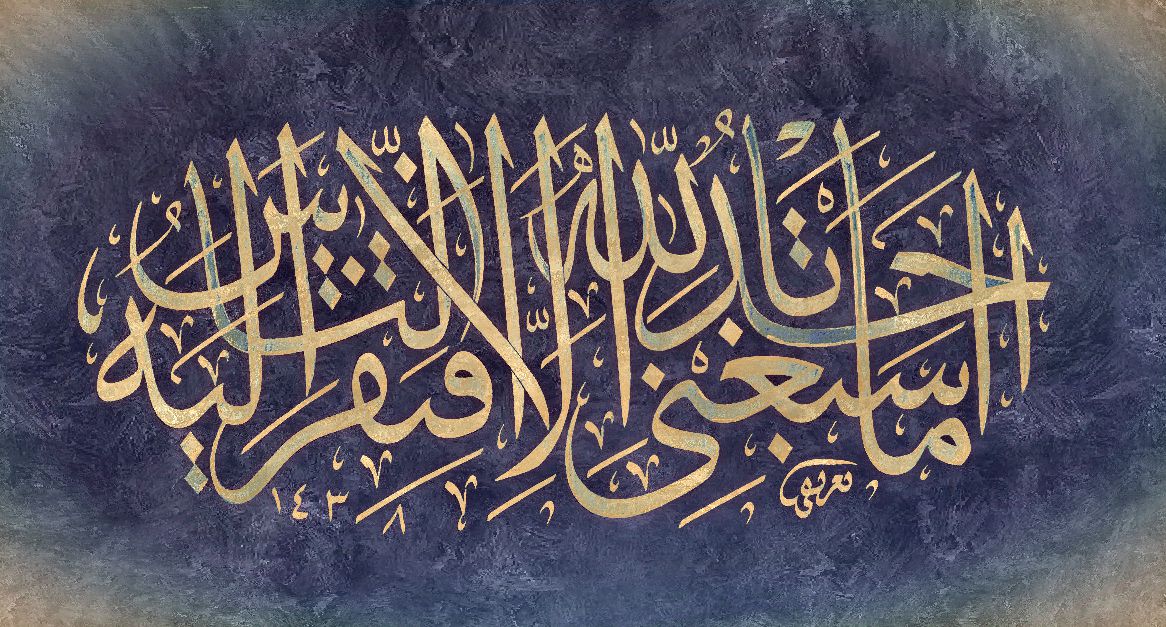 ما استغنى أحد بالله إلا افتقر الناس إليه
١٤٣٨